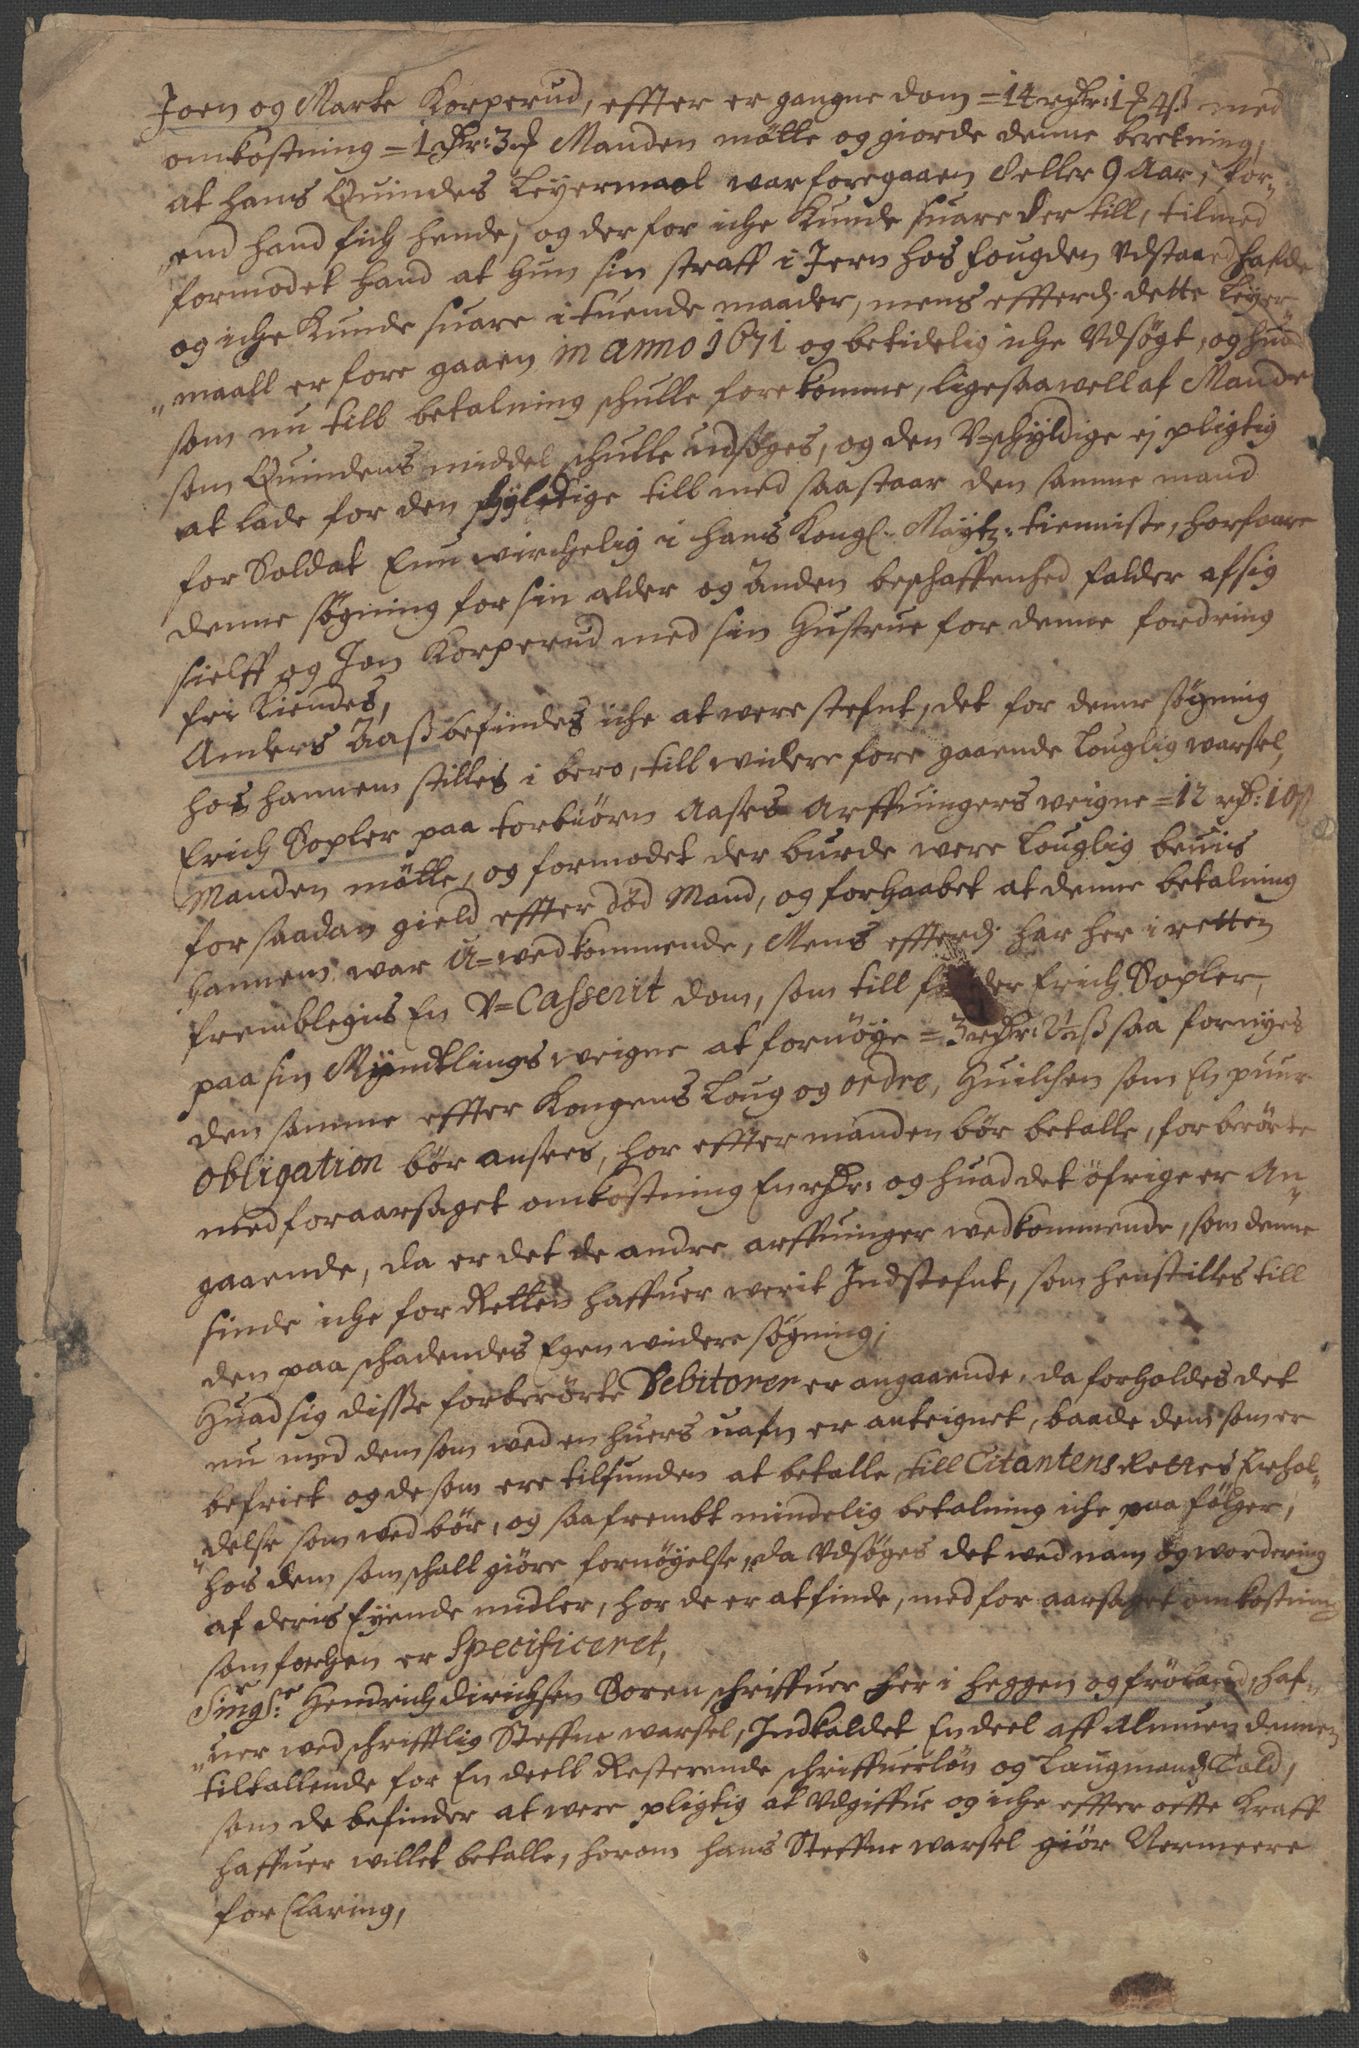 Joen og Marte Korperud, effter er gangne dom = 14 rdr: 1 ʒ 4 ß med
omkostning = 1 rdr: 3 ʒ Manden mötte og giorde denne beretning,
at hans Quindes Leyermaal war foregaaen 8 eller 9 Aar, för„
„end hand fich hende, og der for iche kunde suare der till, tilmed
formodet hand at hun sin straff i Jern hos fougden udstaaed hafde
og iche kunde suare i tuende maader, mens effterdj dette Leyer„
„maall er fore gaaen in anno 1671 og betidelig iche udsøgt, og huad
som nu till betalning schulle fore komme, ligesaawell af Mande
som Quindens middel schulle udsøges, og den U=schyldige ej pligtig
at lade for den schyldige till med saa staar den samme mand
for Soldat Enn wirchelig i hans Kongl: Maytz: tienniste, horfaare
denne søgning for sin alder og anden beschaffenhed falder af sig
sielff og Jon Korperud med sin Hustrue for denne fordring
fri kiendes,
Anders Aaß befindes iche at were stefnt, det for denne søgning
hos hannem stilles i bero, till widere fore gaaende Louglig warsel,
Erich Sopler paa Torbiörn Aases Arffuingers weigne = 12 rdr: 10 ß
Manden mötte, og formodet der burde were Louglig beuis
for saadan gield effter död Mand, og forhaabet at denne betalning
hannem war U=wedkommende, Mens effterdj har her i retten
fremblegis En U=Casserit dom, som till finder Erich Sopler,
paa sin Myndtlings weigne at fornöye = 3 rdr: ß saa fornyes
den samme effter Kongens Loug og ordre, Huilchen som En puur
obligation bör ansees, hor effter manden bör betalle, for berörte
med foraarsaget omkostning En rdr: og huad det öfrige er An„
gaaende, da er det de andre arffuinger wedkommende, som denne
sinde iche for Retten haffuer werit Indstefnt, som henstilles till
den paa schadendes Egen widere søgning;
Huad sig disse forberörte Debitorer er angaaende, da forholdes det
nu med dem som wed en huers nafn er anteignet, baade dem som er
befriet og de som ere tilfunden at betalle, till Citantens Rettes Erhol„
„delse som wed bör, og saa frembt mindelig betalning iche paa fölger,
hos dem som schall giöre fornöyelse, da udsøges det wed nam og wordering
af deris Eyende midler, hor de er at finde, med for aarsaget omkostning
som forhen er Specificeret,
Singr: Hendrich Dirichsen Soren schriffuer her i Heggen og Fröland, haf„
„uer wed schrifftlig Steffne warsel, Indkaldet En deel aff Almuen dennem
tiltallende for En deell Resterende schriffuerlön og Laugmands Told,
som de befinder at were pligtig at udgiffue og iche effter offte kraff
haffuer willet betalle, horom hans Steffne warsel giör Nermeere
for Claring,